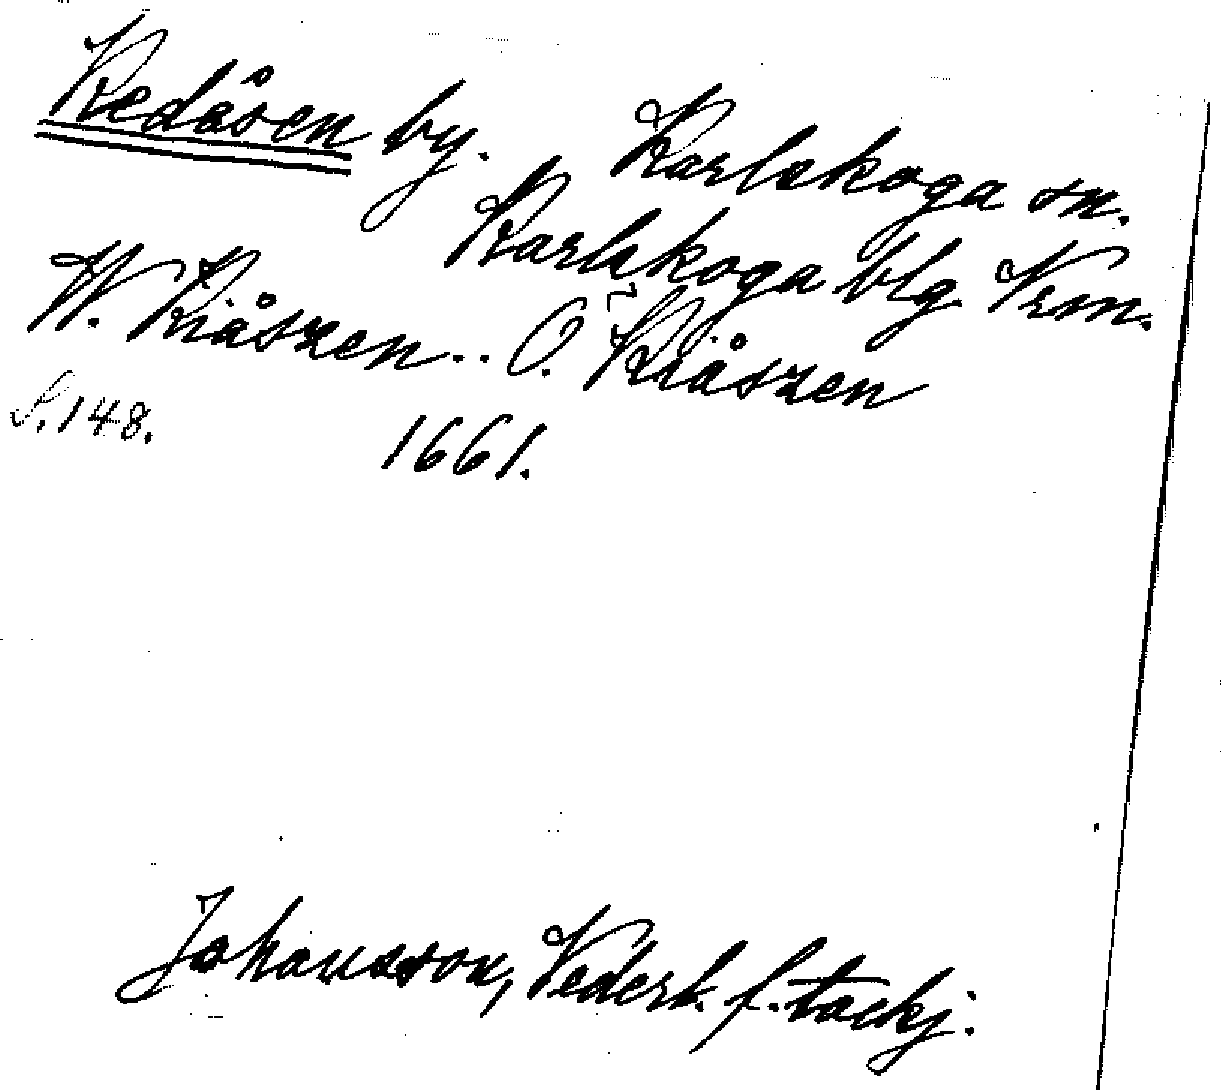 Kedåsen by. Karlskoga sn.
Karlskoga blg Vrm.
W. Kiåszen.. Ö. Kiåszen
S. 148. 1661.
Johansson, Vederl. f. tackj.